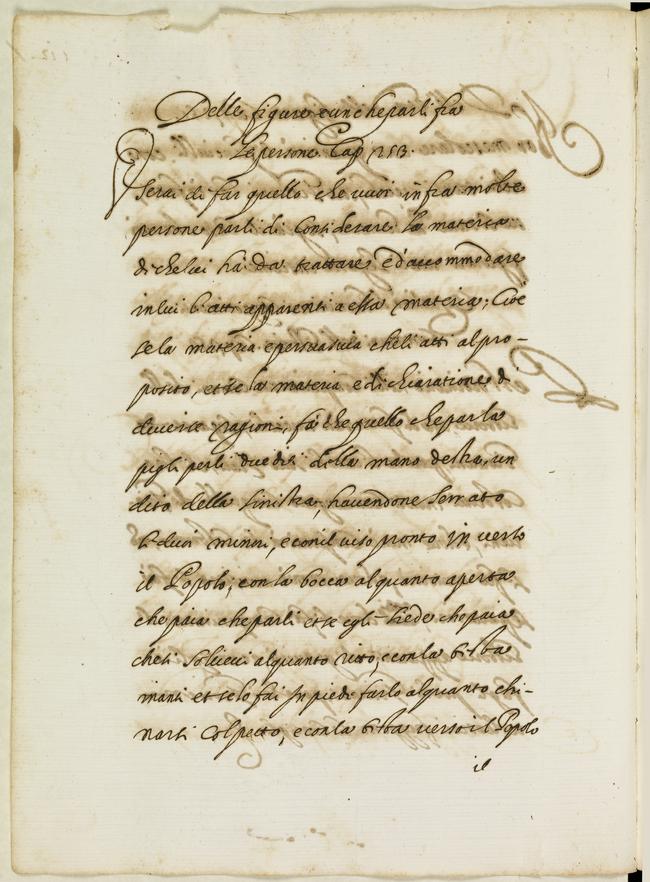 Delle figure e unche parli fra
le persone Cap 253.
Userai di far quello che vuoi infra molte
persone parli di considerare la materia
di che lui hà da trattare e d'accommodare
in lui li atti apparenti a essa materia; Cioè
se la materia e persuasiva che li atti al pro-
posito, et se la materia e di chiaratione di
diverse ragioni, fà che quello che parla
pigli per li due diti della mano destra, un
dito della sinistra, havendone serrato
li duoi minori, e con il viso pronto in verso
il Popolo, con la bocca alquanto aperta
che paia che parli et se egli siede che paia
che si sollievi alquanto ritto, e con la testa
inanti et se lo fai in piede farlo alquanto chi-
narsi col petto, e con la testa verso il Popolo
il